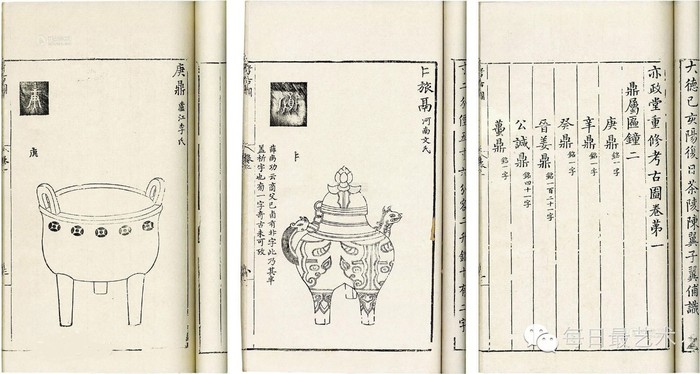 大德己亥陽復日茶陵陳翼子翼俌識
亦政堂重修考古圖卷第一
鼎屬區鐘二
庚鼎 銘一字
辛鼎 銘一字
癸鼎 銘一字
晉姜鼎 銘一百二十一字
公諴鼎 銘四十一字
蠆鼎 銘一字
卜旅鬲 河南文氏
卜
薛尚功云商父己卣有非字此乃其半
蓋析字也商一字奇古未可攷
庚鼎 廬江李氏
庚
每日最艺术